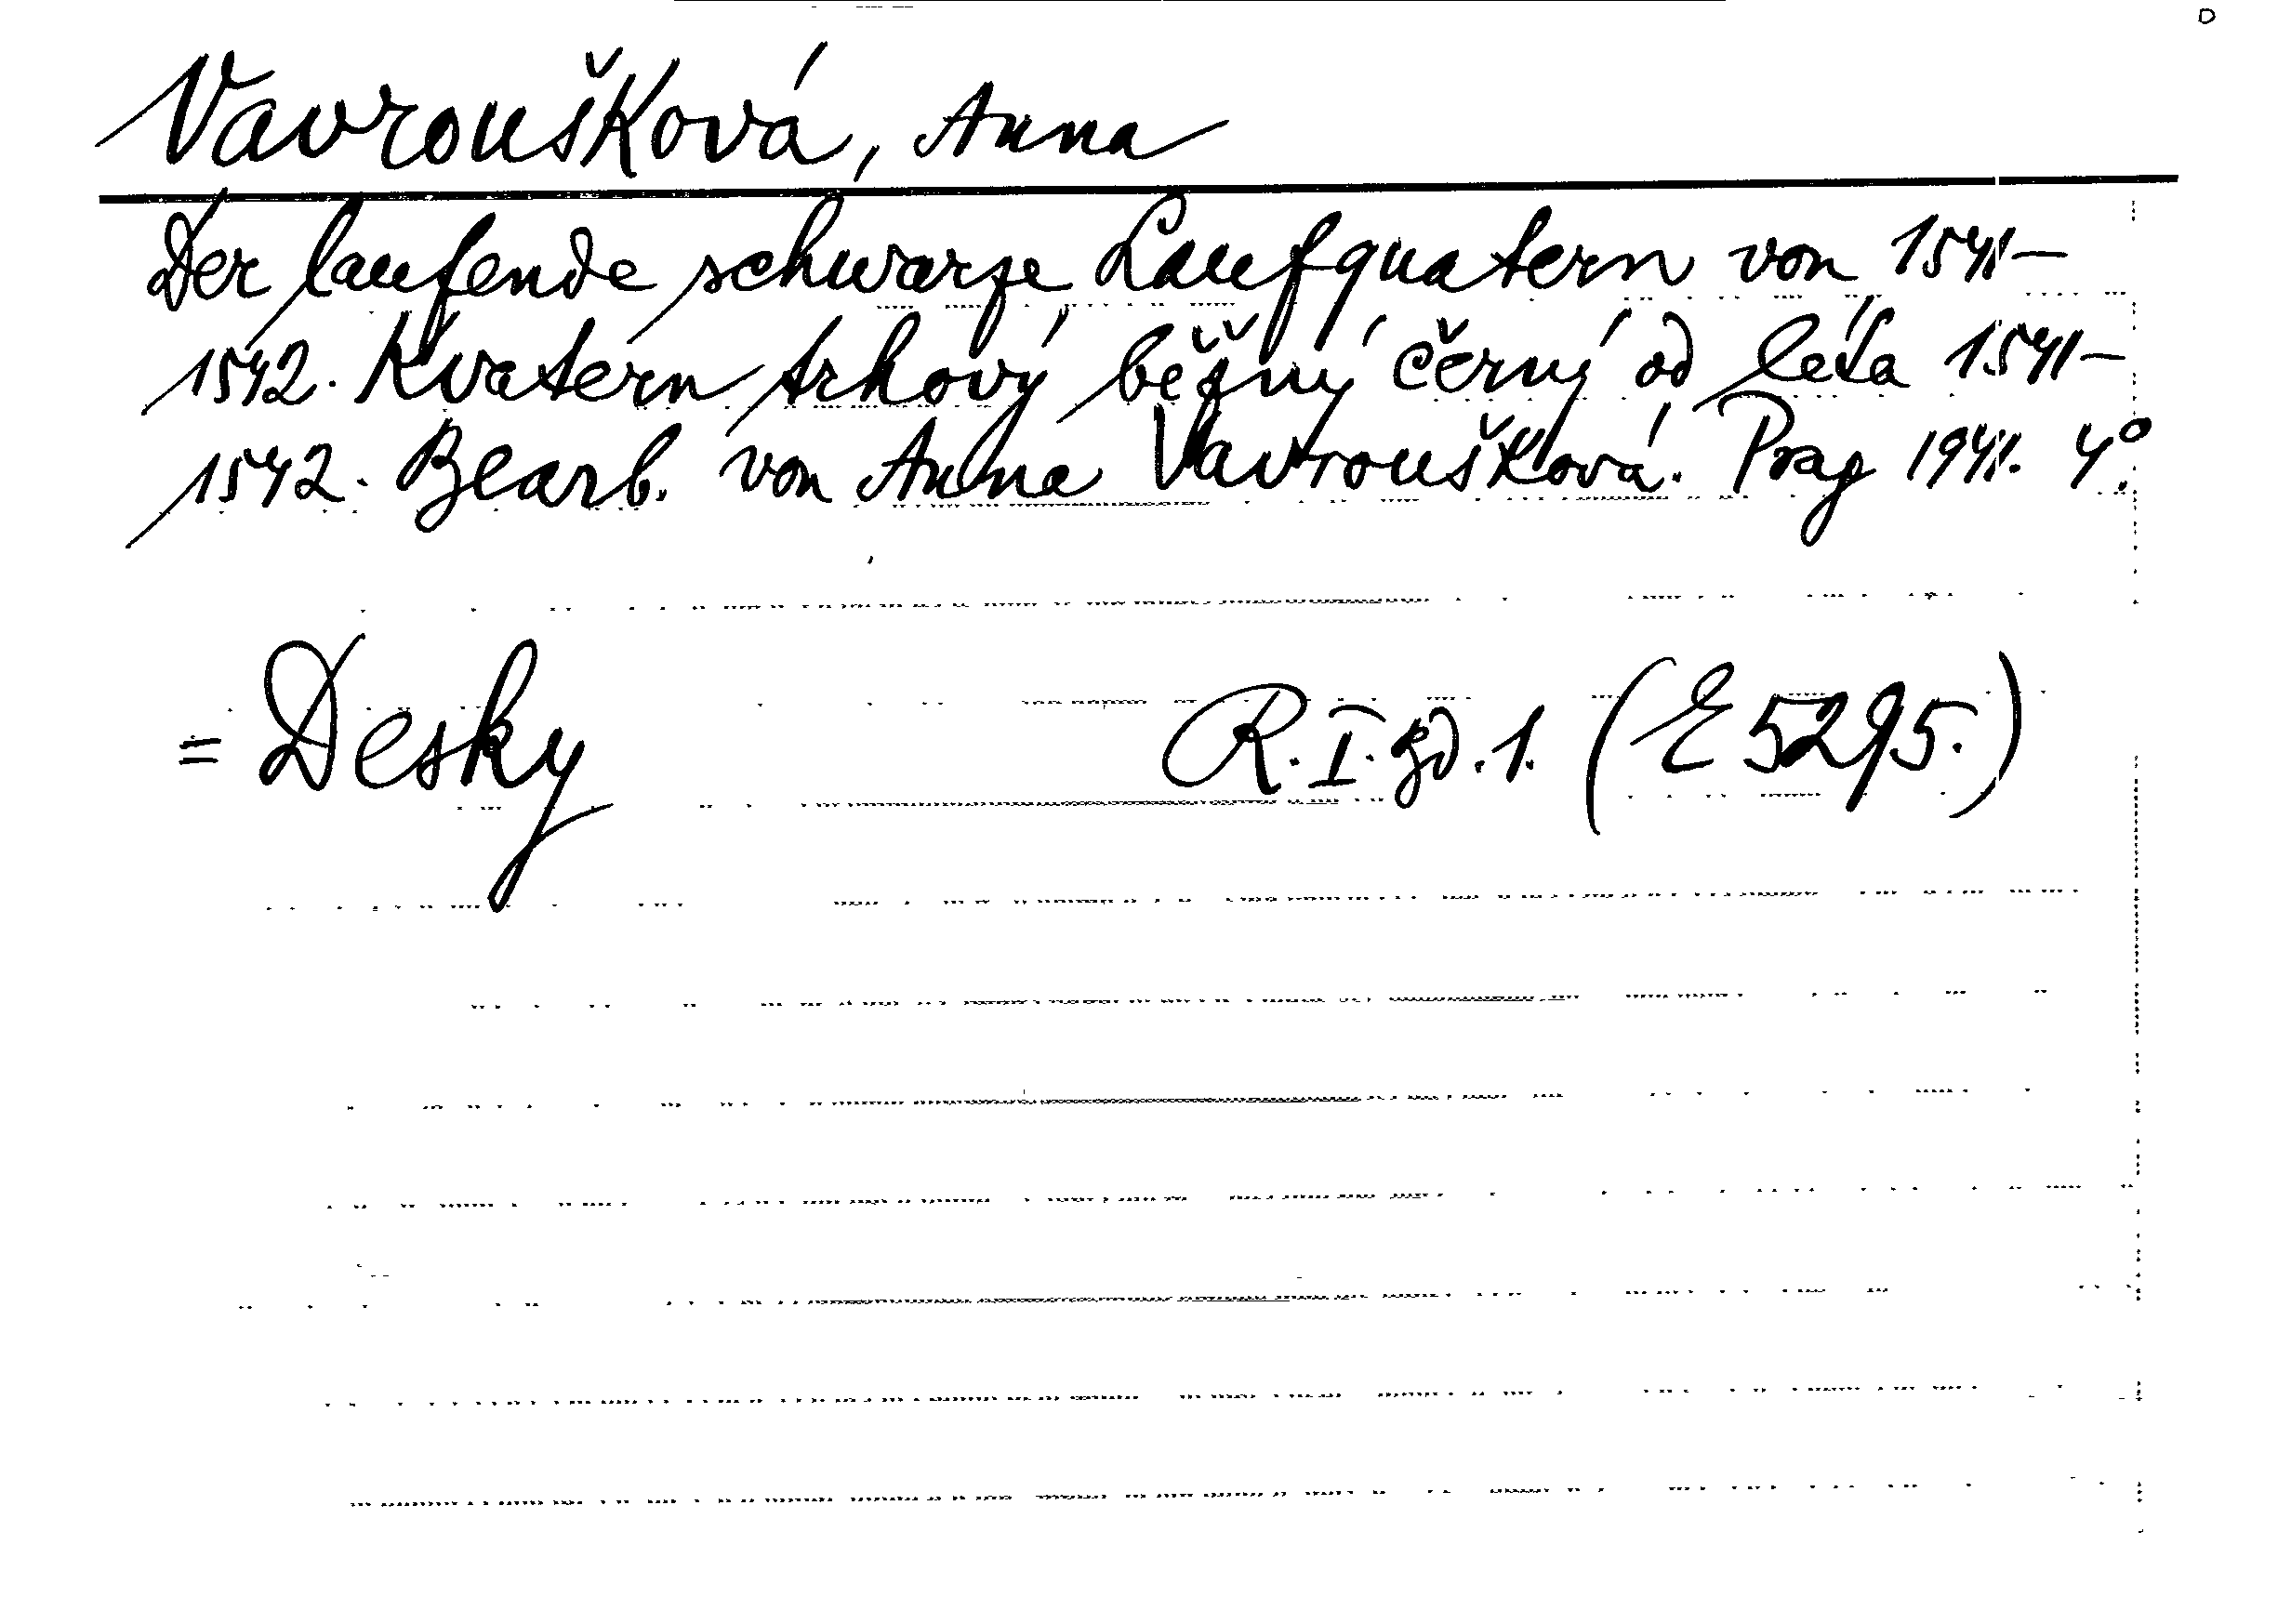 Vavroušková, Anna
Der laufende schwarze Laufquatern von 1541–
1542. Kvatern trhový běžný černý od léta 1541–
1542. Bearb. von Anna Vavroušková. Prag 1941. 4°.
= Desky R. I. gd. 1. (E 5295.)